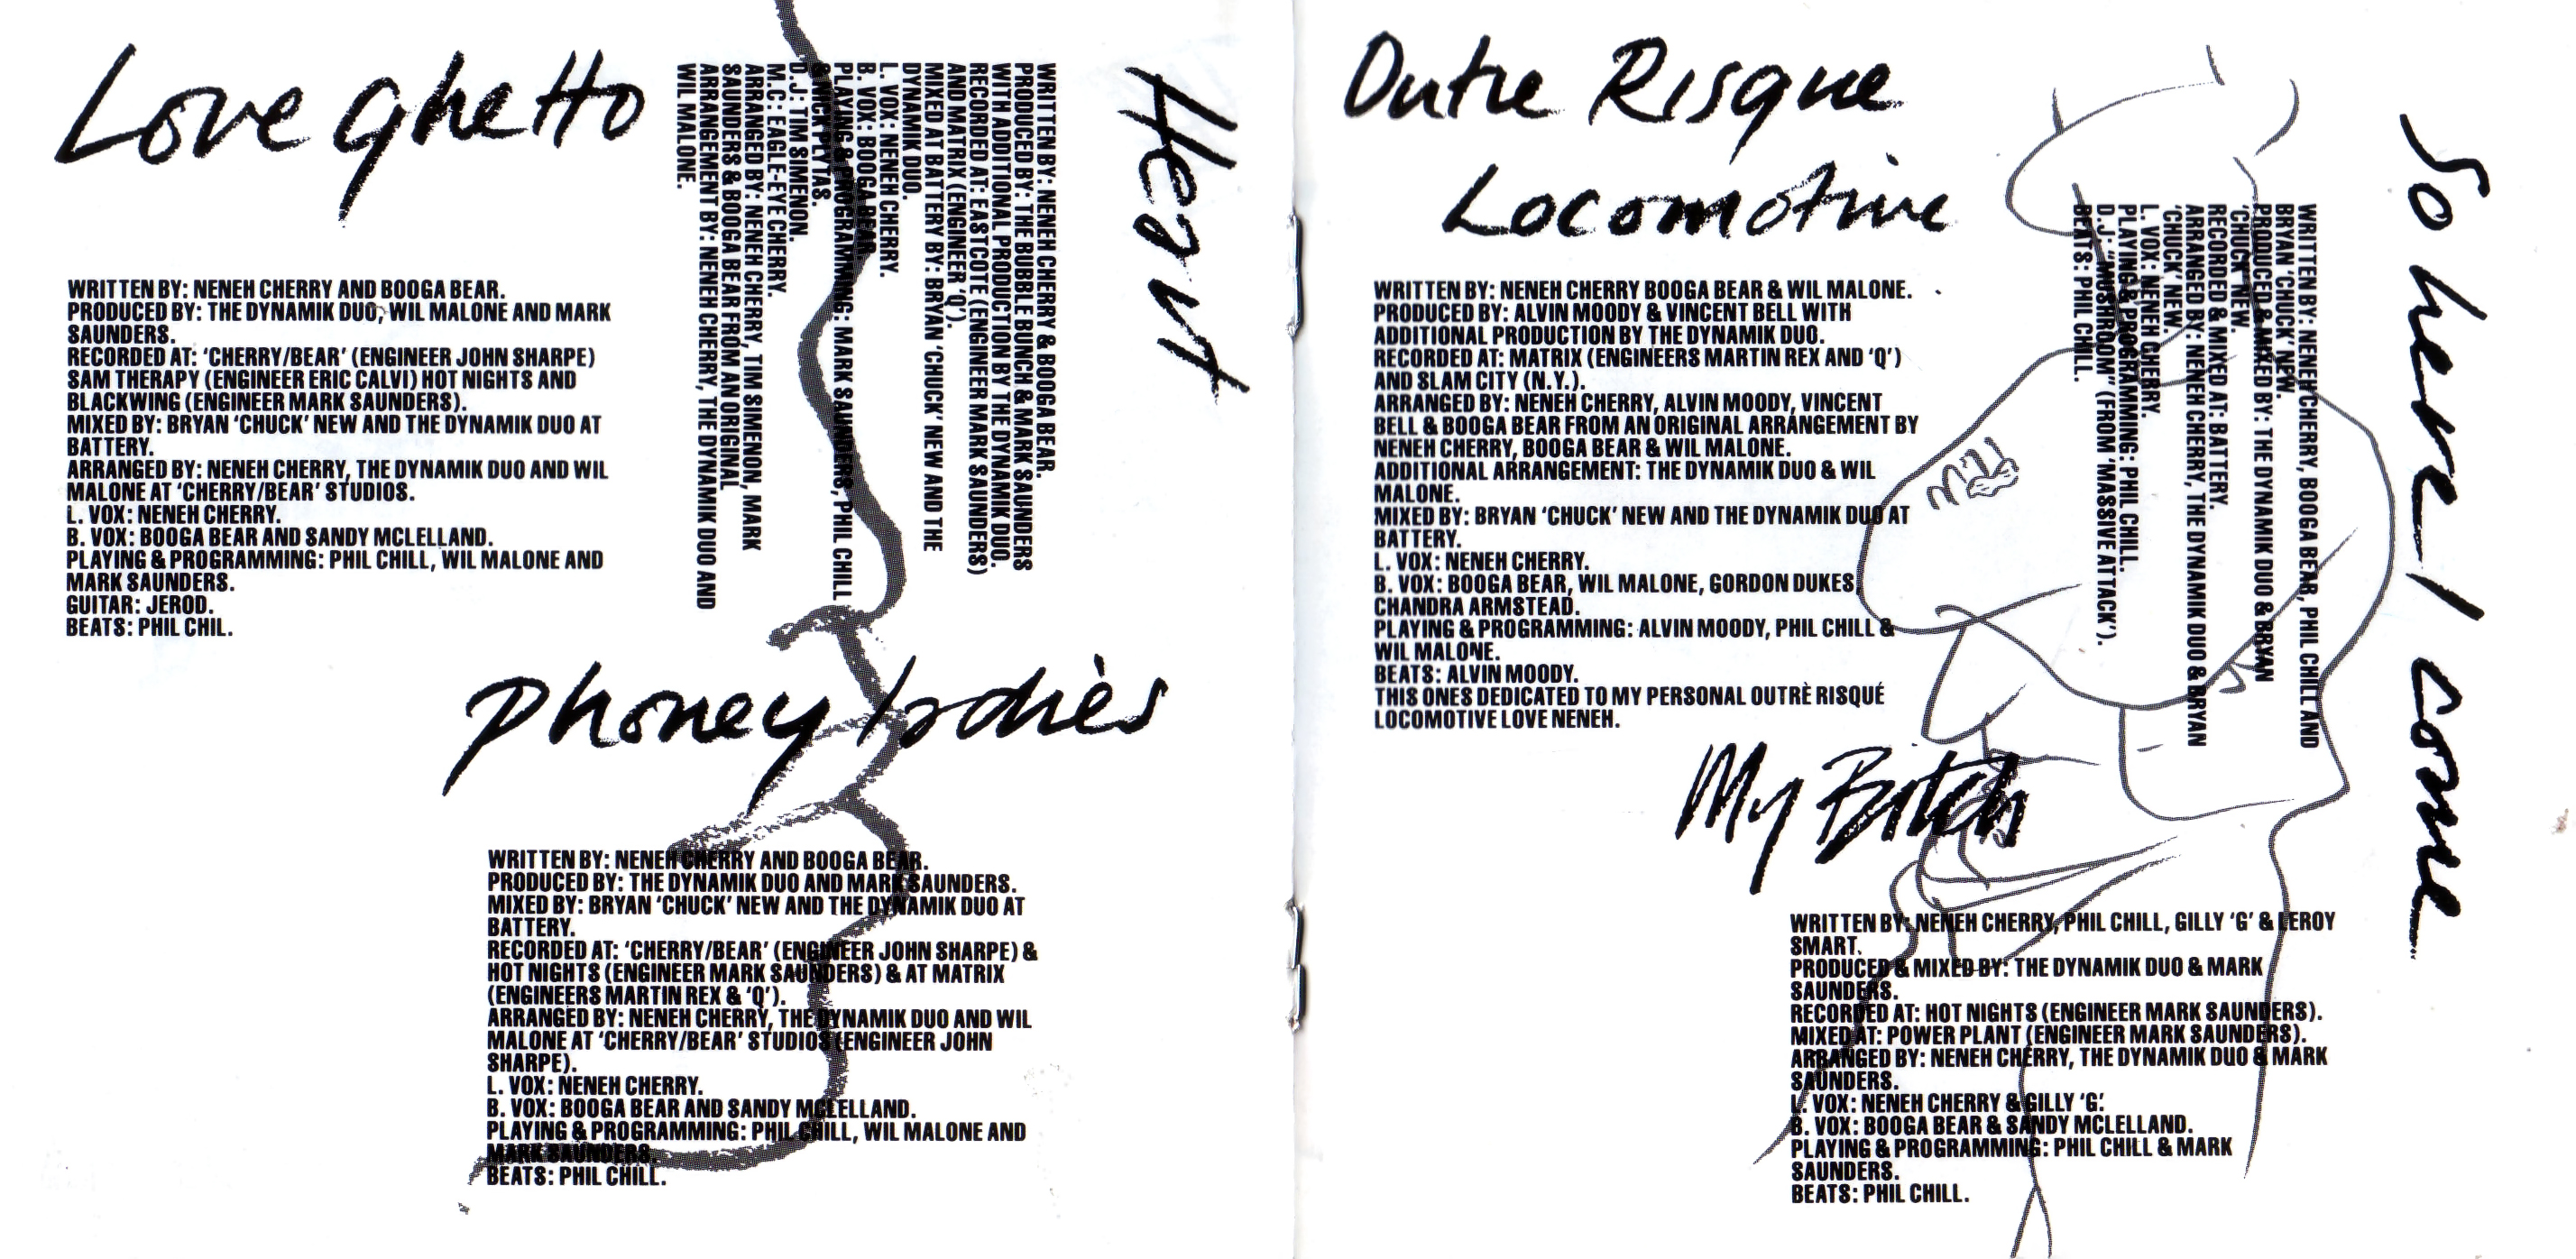 Love ghetto
WRITTEN BY: NENEH CHERRY AND BOOGA BEAR.
PRODUCED BY: THE DYNAMIK DUO, WIL MALONE AND MARK
SAUNDERS.
RECORDED AT: ‘CHERRY/BEAR’ (ENGINEER JOHN SHARPE)
SAM THERAPY (ENGINEER ERIC CALVI) HOT NIGHTS AND
BLACKWING (ENGINEER MARK SAUNDERS).
MIXED BY: BRYAN ‘CHUCK’ NEW AND THE DYNAMIK DUO AT
BATTERY.
ARRANGED BY: NENEH CHERRY, THE DYNAMIK DUO AND WIL
MALONE AT ‘CHERRY/BEAR’ STUDIOS.
L. VOX: NENEH CHERRY.
B. VOX: BOOGA BEAR AND SANDY MCLELLAND.
PLAYING & PROGRAMMING: PHIL CHILL, WIL MALONE AND
MARK SAUNDERS.
GUITAR: JEROD.
BEATS: PHIL CHIL.
Heart
WRITTEN BY: NENEH CHERRY & BOOGA BEAR.
PRODUCED BY: THE BUBBLE BUNCH & MARK SAUNDERS
WITH ADDITIONAL PRODUCTION BY THE DYNAMIK DUO.
RECORDED AT: EASTCOTE (ENGINEER MARK SAUNDERS)
AND MATRIX (ENGINEER ‘Q’).
MIXED AT BATTERY BY: BRYAN ‘CHUCK’ NEW AND THE
DYNAMIK DUO.
L. VOX: NENEH CHERRY.
B. VOX: BOOGA BEAR.
PLAYING & PROGRAMMING: MARK SAUNDERS, PHIL CHILL
& NICK PLYTAS.
D.J: TIM SIMENON.
M.C: EAGLE-EYE CHERRY.
ARRANGED BY: NENEH CHERRY, TIM SIMENON, MARK
SAUNDERS & BOOGA BEAR FROM AN ORIGINAL
ARRANGEMENT BY: NENEH CHERRY, THE DYNAMIK DUO AND
WIL MALONE.
Phoney ladies
WRITTEN BY: NENEH CHERRY AND BOOGA BEAR.
PRODUCED BY: THE DYNAMIK DUO AND MARK SAUNDERS.
MIXED BY: BRYAN ‘CHUCK’ NEW AND THE DYNAMIK DUO AT
BATTERY.
RECORDED AT: ‘CHERRY/BEAR’ (ENGINEER JOHN SHARPE) &
HOT NIGHTS (ENGINEER MARK SAUNDERS) & AT MATRIX
(ENGINEERS MARTIN REX & ‘Q’).
ARRANGED BY: NENEH CHERRY, THE DYNAMIK DUO AND WIL
MALONE AT ‘CHERRY/BEAR’ STUDIOS (ENGINEER JOHN
SHARPE).
L. VOX: NENEH CHERRY.
B. VOX: BOOGA BEAR AND SANDY MCLELLAND.
PLAYING & PROGRAMMING: PHIL CHILL, WIL MALONE AND
MARK SAUNDERS.
BEATS: PHIL CHILL.
Outre Risque
Locomotive
WRITTEN BY: NENEH CHERRY BOOGA BEAR & WIL MALONE.
PRODUCED BY: ALVIN MOODY & VINCENT BELL WITH
ADDITIONAL PRODUCTION BY THE DYNAMIK DUO.
RECORDED AT: MATRIX (ENGINEERS MARTIN REX AND ‘Q’)
AND SLAM CITY (N.Y.).
ARRANGED BY: NENEH CHERRY, ALVIN MOODY, VINCENT
BELL & BOOGA BEAR FROM AN ORIGINAL ARRANGEMENT BY
NENEH CHERRY, BOOGA BEAR & WIL MALONE.
ADDITIONAL ARRANGEMENT: THE DYNAMIK DUO & WIL
MALONE.
MIXED BY: BRYAN ‘CHUCK’ NEW AND THE DYNAMIK DUO AT
BATTERY.
L. VOX: NENEH CHERRY.
B. VOX: BOOGA BEAR, WIL MALONE, GORDON DUKES,
CHANDRA ARMSTEAD.
PLAYING & PROGRAMMING: ALVIN MOODY, PHIL CHILL &
WIL MALONE.
BEATS: ALVIN MOODY.
THIS ONES DEDICATED TO MY PERSONAL OUTRÈ RISQUÉ
LOCOMOTIVE LOVE NENEH.
So here I come
WRITTEN BY: NENEH CHERRY, BOOGA BEAR, PHIL CHILL AND
BRYAN ‘CHUCK’ NEW.
PRODUCED & MIXED BY: THE DYNAMIK DUO & BRYAN
‘CHUCK’ NEW.
RECORDED & MIXED AT: BATTERY.
ARRANGED BY: NENEH CHERRY, THE DYNAMIK DUO & BRYAN
‘CHUCK’ NEW.
L. VOX: NENEH CHERRY.
PLAYING & PROGRAMMING: PHIL CHILL.
D.J: “MUSHROOM” (FROM ‘MASSIVE ATTACK’).
BEATS: PHIL CHILL.
My Bitch
WRITTEN BY: NENEH CHERRY, PHIL CHILL, GILLY ‘G’ & LEROY
SMART.
PRODUCED & MIXED BY: THE DYNAMIK DUO & MARK
SAUNDERS.
RECORDED AT: HOT NIGHTS (ENGINEER MARK SAUNDERS).
MIXED AT: POWER PLANT (ENGINEER MARK SAUNDERS).
ARRANGED BY: NENEH CHERRY, THE DYNAMIK DUO & MARK
SAUNDERS.
L. VOX: NENEH CHERRY & GILLY ‘G’.
B. VOX: BOOGA BEAR & SANDY MCLELLAND.
PLAYING & PROGRAMMING: PHIL CHILL & MARK
SAUNDERS.
BEATS: PHIL CHILL.